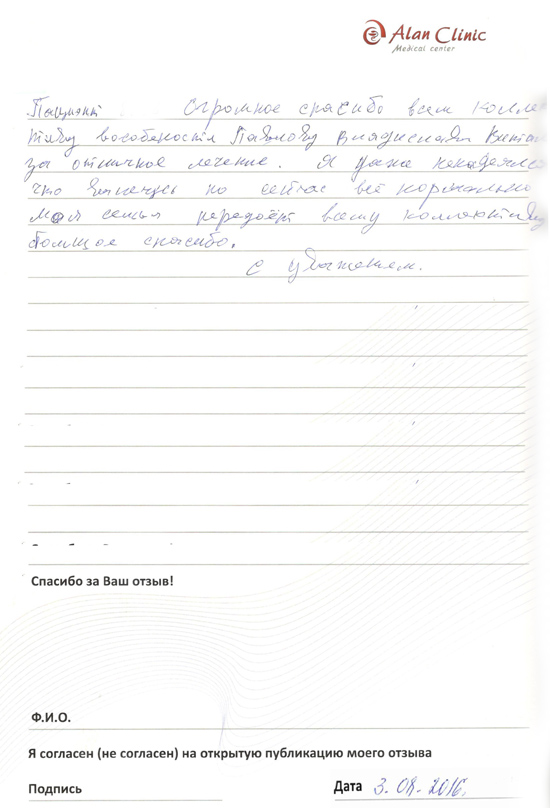 Alan Clinic
Medical center
Пациент Огромное спасибо всем колле
тиву вособености Павлову
за отличное лечение. Я даже
что но сейчас всё нормально
Моя семья передоёт вашу коллективу
большое спасибо.
с уважением.
Спасибо за Ваш отзыв!
Ф.И.О.
Я согласен (не согласен) на открытую публикацию моего отзыва
Подпись Дата 3.08.2016.